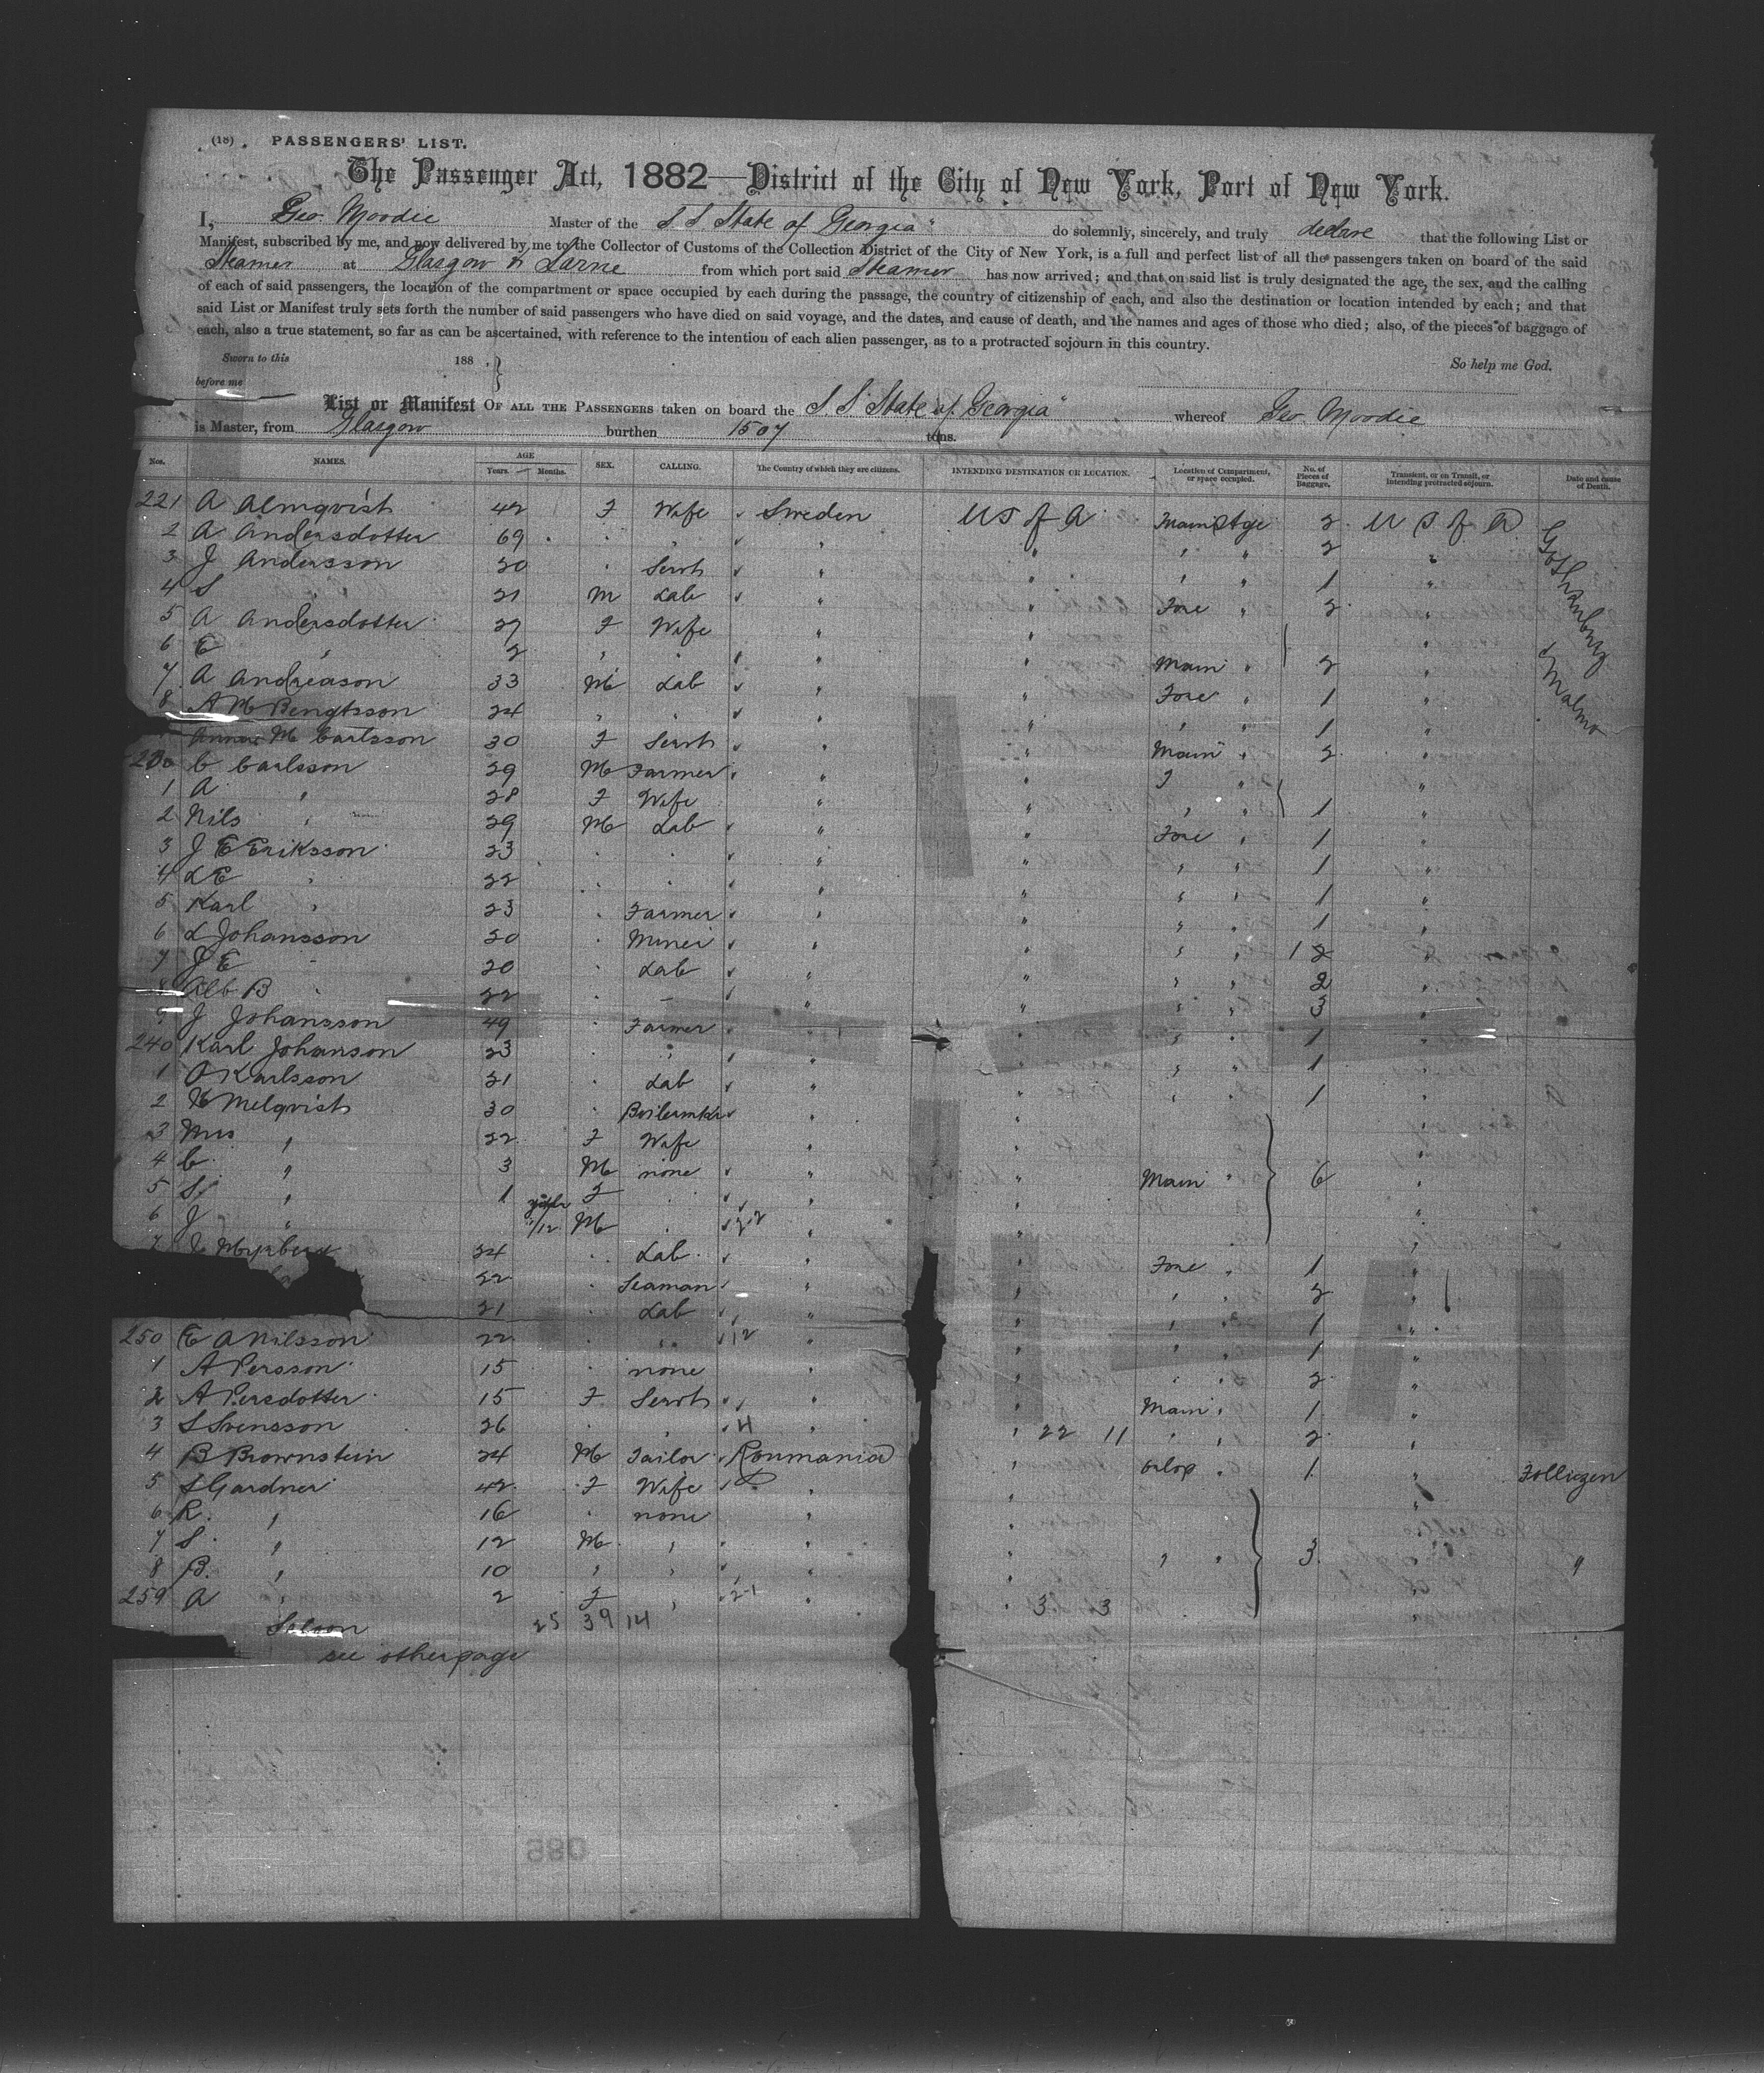 (18) PASSENGERS' LIST.
The Passenger Act, 1882—District of the City of New York, Port of New York.
I, Geo. Moodie Master of the S.S. State of Georgia" do solemnly, sincerely, and truly declare that the following List or
Manifest, subscribed by me, and now delivered by me to the Collector of Customs of the Collection District of the City of New York, is a full and perfect list of all the passengers taken on board of the said
Steamer at Glasgow & Larne from which port said Steamer has now arrived; and that on said list is truly designated the age, the sex, and the calling
of each of said passengers, the location of the compartment or space occupied by each during the passage, the country of citizenship of each, and also the destination or location intended by each; and that
said List or Manifest truly sets forth the number of said passengers who have died on said voyage, and the dates, and cause of death, and the names and ages of those who died; also, of the pieces of baggage of
each, also a true statement, so far as can be ascertained, with reference to the intention of each alien passenger, as to a protracted sojourn in this country.
Sworn to this 188 . } So help me God.
before me
List or Manifest OF ALL THE PASSENGERS taken on board the S.S. "State of Georgia" whereof Geo. Moodie
is Master, from Glasgow burthen 1507 tons.
Nos. NAMES. AGE Years. Months. SEX. CALLING. The Country of which they are citizens. INTENDING DESTINATION OR LOCATION. Location of Compartment, or space occupied. No. of Pieces of Baggage. Transient, or on Transit, or intending protracted sojourn. Date and cause of Death.
221 A Almqvist 42 F Wife Sweden US of A Main Stge 2 U S of A Gothenburg & Malmo
2 A Andersdotter 69 . " " " " " 2 "
3 J Andersson 20 " Servt " " " " 1 "
4 S 21 M Lab " " Fore " 2 "
5 A Andersdotter 27 F Wife " " "
6 E " 2 " " " " Main " 2 "
7 A Andreason 33 M Lab " " Fore " 1 "
8 A M Bengtsson 24 " " " " " " 1 "
M Carlsson 30 F Servt " " Main " 2 "
230 C Carlsson 29 M Farmer " " " "
1 A " 28 F Wife " " " " 1 "
2 Nils " 29 M Lab " " Fore " 1 "
3 J E Eriksson 23 " " " " " " 1 "
4 L E " 22 " " " " " " 1 "
5 Karl " 23 " Farmer " " " " 1 "
6 L Johansson 20 " Miner " " " " 1 2 "
7 J E " 20 " Lab " " " " 2 "
8 Alb. B " 22 " – " " " " 3 "
9 J Johansson 49 " Farmer " " " " 1 "
240 Karl Johanson 23 " " " " " " 1 "
1 O Karlsson 21 " Lab " " " " 1 "
2 Melqvist 30 " Boilermkr " " "
3 Mrs " 22 F Wife " " "
4 C. " 3 M none " " Main " 6 "
5 S " 1 F " " " "
6 J " /12 M " " " "
7 24 " Lab " " Fore " 1 "
22 " Seaman " " " " 2 "
21 " Lab " " " " 1 "
250 E A Nilsson 22 " " 12 " " " " 1 "
1 A Persson 15 " none " " " " 2 "
2 A Persdotter 15 F Servt " " Main " 1 "
3 S Svensson 26 " " 4 " " 22 11 " " 2 "
4 B Brownstein 24 M Tailor Roumania " Orlop " 1 "
5 S Gardner 42 F Wife " " "
6 R. " 16 " none " "
7 S. " 12 M " " " " " 3 "
8 B. " 10 " " " " "
259 A " 2 F " 2-1 " " 3 3 "
Saloon 25 39 14
see other page